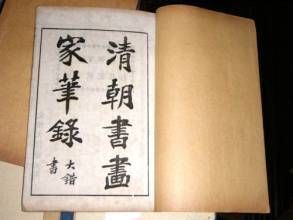 清朝書畫
家筆錄
大鍇
書